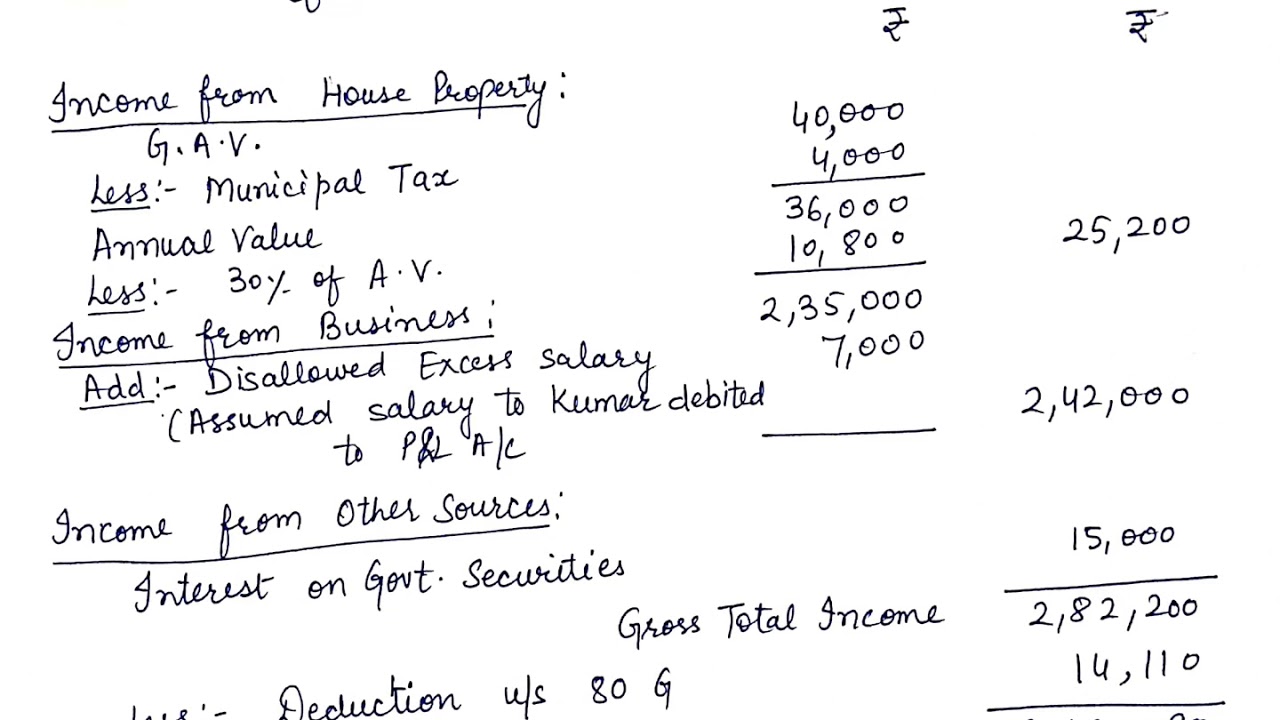 ₹ ₹
Income from House Property:
G.A.V. 40,000
Less:- Municipal Tax 4,000
Annual Value 36,000
Less:- 30% of A.V. 10,800 25,200
Income from Business: 2,35,000
Add:- Disallowed Excess salary 7,000
(Assumed salary to Kumar debited 2,42,000
to P&L A/C
Income from Other Sources:
Interest on Govt. Securities 15,000
Gross Total Income 2,82,200
Less:- Deduction u/s 80 G 14,110